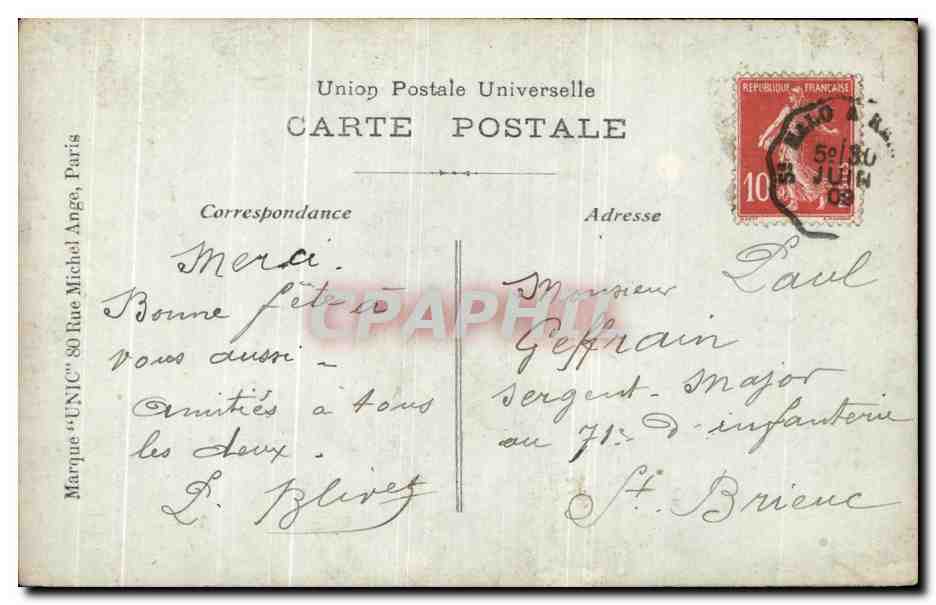 Union Postale Universelle
CARTE POSTALE
Correspondance
Adresse
Marque "UNIC" 80 Rue Michel Ange, Paris
REPUBLIQUE FRANÇAISE
10
St MALO A
5º/30
JUIN
09
Merci.
Bonne fête à
vous aussi -
Amitiés à tous
les deux.
Monsieur Paul
Geffrain
Sergent-Major
au 71e d'infanterie
St. Brieuc
CPAPHIL